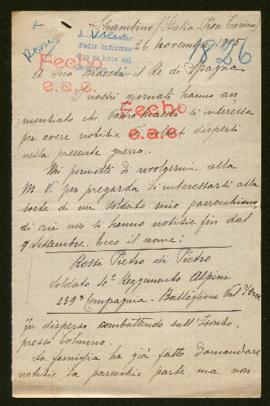 Strambino (Italia Prov. Torino)
26 novembre 1915
826
Rossi
A Viena
Pedir informes
Fecho
e.a.c.
Fecho
e.a.c.
A Sua Maestà il Re di Spagna
I nostri giornali hanno an
nunciato che Vostra Maestà si interessa
per avere notizie soldati dispersi
nella presente guerra.
Mi permetto di rivolgermi alla
M. V. per pregarla di interessarsi alla
sorte di un soldato mio parrocchiano,
di cui non si hanno notizie fin dal
9 settembre. Ecco il nome:
Rossi Pietro di Pietro
Soldato 4º Reggimento Alpini
239ª Compagnia - Battaglione Val d'Orco
fu disperso combattendo sull'Isonzo,
pressi Tolmino.
La famiglia ha già fatto domandare
notizie da parecchie parti ma non